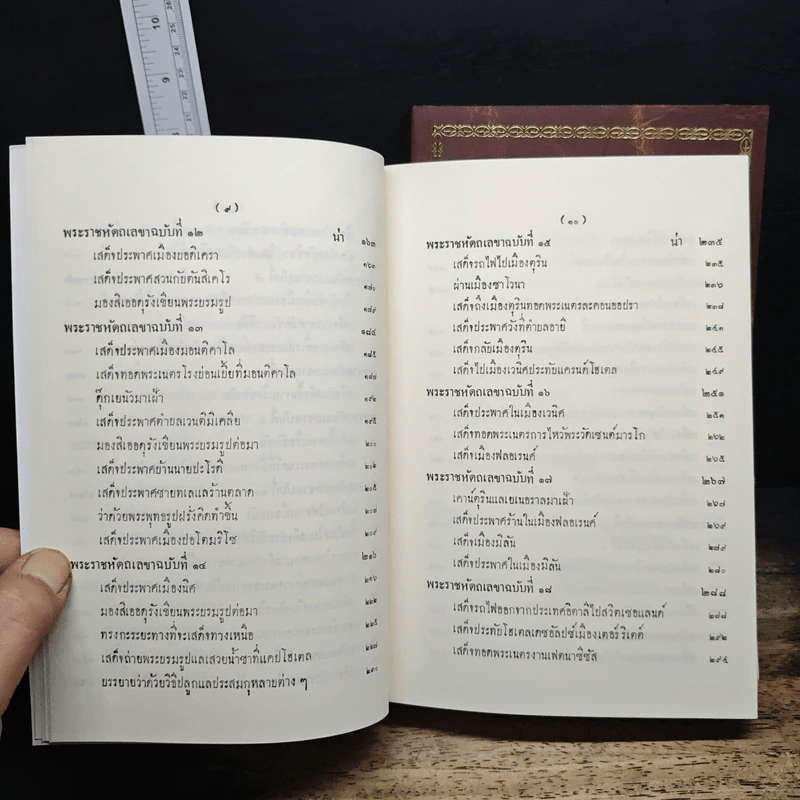 10
9
26
25
24
23
( ๙ )
พระราชหัตถเลขาฉบับที่ ๑๒ น่า ๑๖๓
เสด็จประพาศเมืองยอดิเครา ๑๖๓
เสด็จประพาศสวนกัยดันสิเคโร
มองสิเออดุรังเขียนพระบรมรูป
พระราชหัตถเลขาฉบับที่ ๑๓ ๑๘๔
เสด็จประพาศเมืองมอนติคาโล ๑๘๕
เสด็จทอดพระเนตรโรงบ่อนเบี้ยที่มอนติคาโล
ดุ๊กเยนัวมาเฝ้า ๑๙๒
เสด็จประพาศตำบลเวนติมิเคลีย ๑๙๕
มองสิเออดุรังเขียนพระบรมรูปต่อมา ๒๐๐
เสด็จประพาศบ้านนายปะโรดี ๒๐๒
เสด็จประพาศชายทเลแลร้านตลาด ๒๐๕
ว่าด้วยพระพุทธรูปฝรั่งคิดทำขึ้น ๒๐๗
เสด็จประพาศเมืองบอโดมริโซ ๒๐๙
พระราชหัตถเลขาฉบับที่ ๑๔ ๒๑๖
เสด็จประพาศเมืองนิศ ๒๑๖
มองสิเออดุรังเขียนพระบรมรูปต่อมา ๒๒๒
ทรงกะระยะทางที่จะเสด็จทางเหนือ ๒๒๕
เสด็จถ่ายพระบรมรูปแลเสวยน้ำชาที่แคปโฮเตล ๒๒๗
บรรยายว่าด้วยวิธีปลูกแลประสมกุหลายต่าง ๆ ๒๓๐
( ๑๐ )
พระราชหัตถเลขาฉบับที่ ๑๕ น่า ๒๓๕
เสด็จรถไฟไปเมืองตุริน ๒๓๕
ผ่านเมืองซาโวนา ๒๓๖
เสด็จถึงเมืองตุรินทอดพระเนตรละคอนออปรา ๒๓๗
เสด็จประพาศวังที่ตำบลอายี ๒๔๓
เสด็จกลับเมืองตุริน ๒๔๕
เสด็จไปเมืองเวนิศประทับแครนด์โฮเตล ๒๔๙
พระราชหัตถเลขาฉบับที่ ๑๖ ๒๕๑
เสด็จประพาศในเมืองเวนิศ ๒๕๑
เสด็จทอดพระเนตรการไหว้พระวัดเซนต์มารโก ๒๖๒
เสด็จเมืองฟลอเรนศ์ ๒๖๕
พระราชหัตถเลขาฉบับที่ ๑๗ ๒๖๗
เคาน์ตุรินแลเยเนอราลมาเฝ้า ๒๖๗
เสด็จประพาศร้านในเมืองฟลอเรนศ์ ๒๖๙
เสด็จเมืองมิลัน ๒๗๙
เสด็จประพาศในเมืองมิลัน ๒๘๐
พระราชหัตถเลขาฉบับที่ ๑๘ ๒๘๘
เสด็จรถไฟออกจากประเทศอิตาลีไปสวิตเซอแลนด์
เสด็จประทับโฮเตลเดซอัลปซ์เมืองเตอร์ริเตต์ ๒๙๒
เสด็จทอดพระเนตรงานเฟตนาซิซัส ๒๙๕